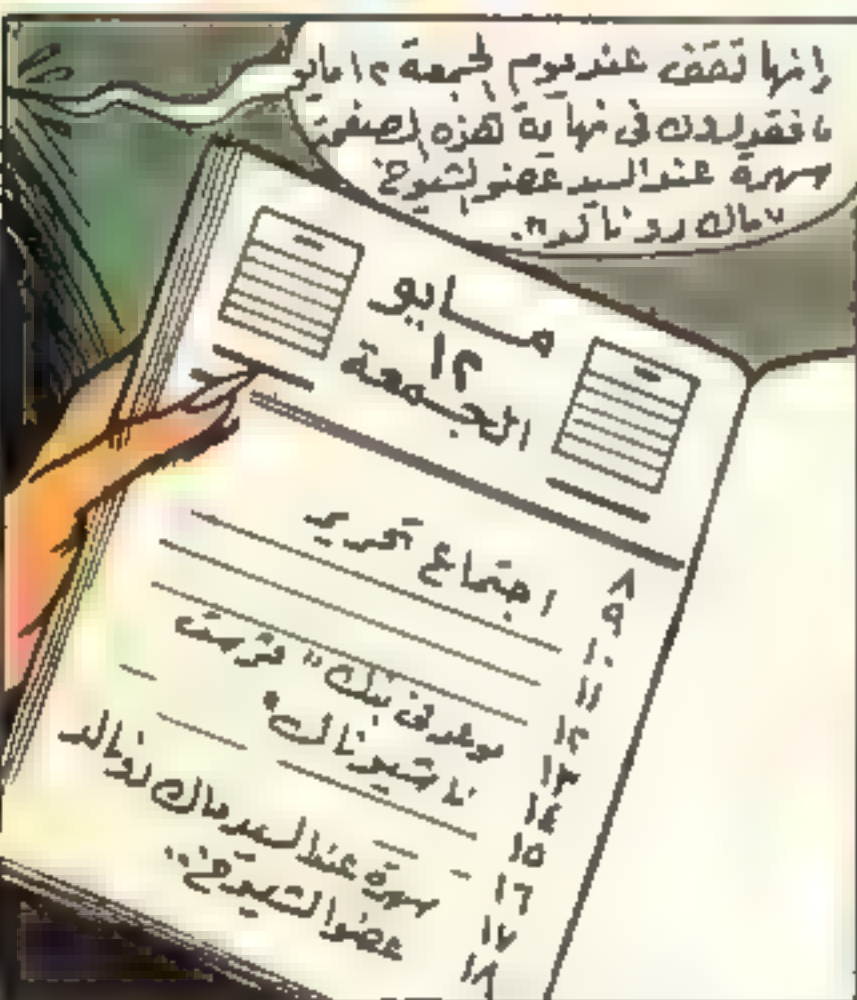 إنها تقف عند يوم الجمعة ١٢ مايو
فى نهاية هذه الصفحة
سهرة عند السيد عضو الشيوخ
"ماك رونالد".
مايو
١٢
الجمعة
٨
اجتماع تحرير
٩
١٠
١١
١٢
موعد فى بنك "فرست
١٣
ناشيونال"
١٤
١٥
١٦
سهرة عند السيد ماك رونالد
١٧
عضو الشيوخ..
١٨